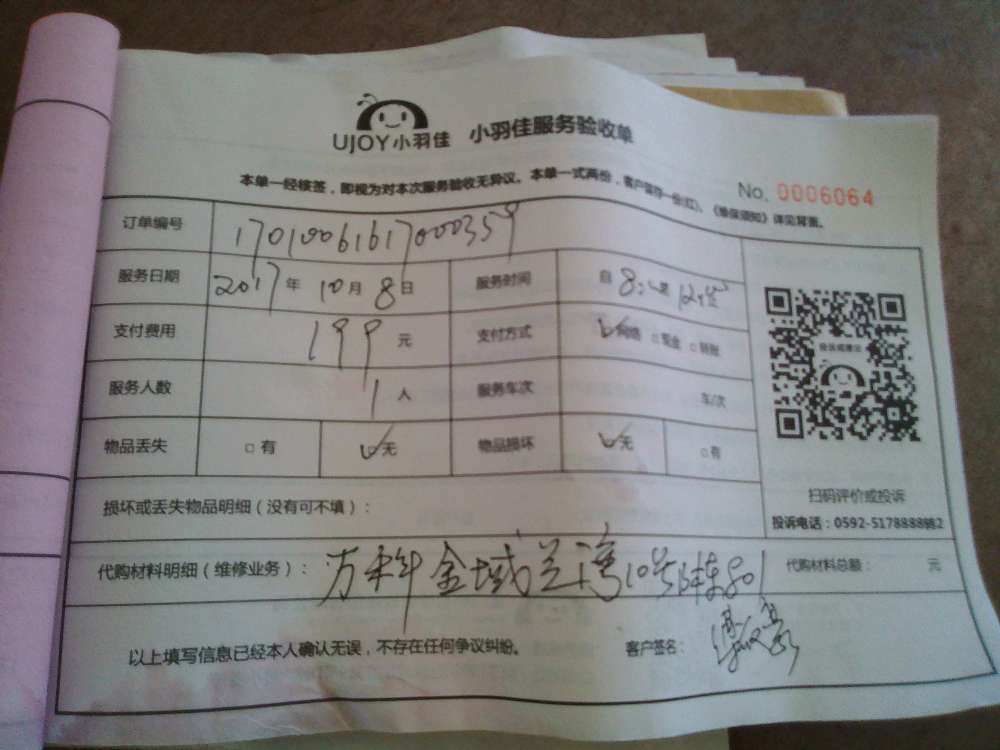 UJOY小羽佳 小羽佳服务验收单
本单一经核签，即视为对本次服务验收无异议。本单一式两份，客户留存一份(红)，《维保须知》详见背面。
No. 0006064
订单编号 17010061617000359
服务日期 2017年 10月 8日 服务时间 自 8: 至 12
支付费用 199 元 支付方式 网络 □现金 □转账
服务人数 1 人 服务车次 车/次
物品丢失 □有 无 物品损坏 无 □有
投诉或建议
扫码评价或投诉
损坏或丢失物品明细（没有可不填）：
投诉电话：0592-5178888
代购材料明细（维修业务）： 万科金域兰湾10号 801 代购材料总额： 元
以上填写信息已经本人确认无误，不存在任何争议纠纷。 客户签名：